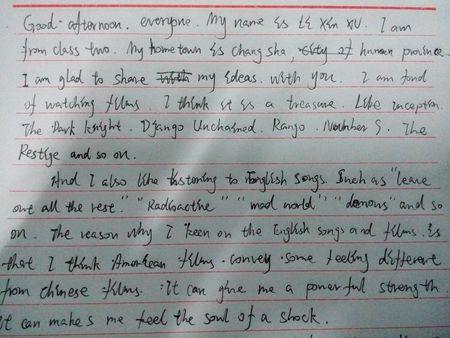 Good afternoon. everyone. My name is Li Xin Xu. I am
from class two. My hometown is changsha, city of hunan province.
I am glad to share with my ideas. with you. I am fond
of watching films. I think it is a treasure. Like inception.
The Dark knight. Django Unchained. Rango. Number 9. The
Restige and so on.
And I also like listening to English songs. Such as "leave
out all the rest." "Radioactive" "mad world" "demons" and so
on. The reason why I keen on the English songs and films. is
that I think American films convey some feeling different
from chinese films. It can give me a powerful strength
it can makes me feel the soul of a shock.